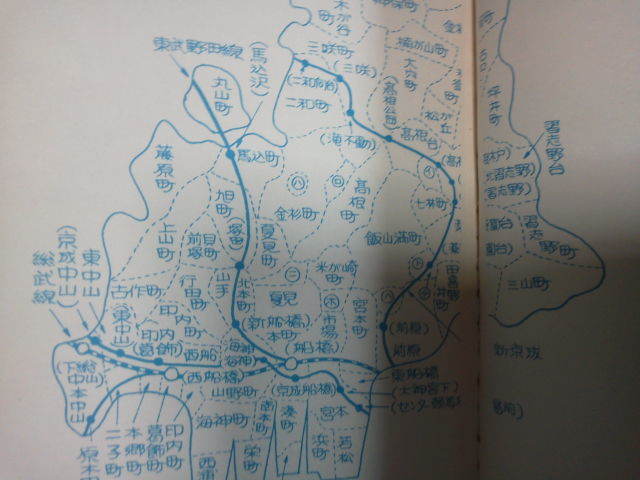 木が谷
町
三咲町
(三咲)
(二和向台)
二和町
(滝不動)
東武野田線
(馬込沢)
丸山町
馬込町
藤原町
旭町
㋩
㋺
金杉町
高根町
大穴町
松が丘
(高根公団)
高根台
㋑
七林町
飯山満町
習志野台
習志野町
三山町
上山町
前貝塚町
塚田
夏見町
㋥
米が崎町
㋭
市場
宮本町
古作町
行田町
山手
北本町
夏見
本町
(新船橋)
(船橋)
(前原)
前原
田喜野井町
総武線
(京成中山)
東中山
(東中山)
印内
印内
(葛飾)
西船
(西船橋)
海神
海神
山野町
(京成船橋)
東船橋
(大神宮下)
新京成
(下総中山)
本中山
二子町
本郷町
葛飾町
印内町
海神町
南本町
湊町
宮本
浜町
若松
栄町
西浦